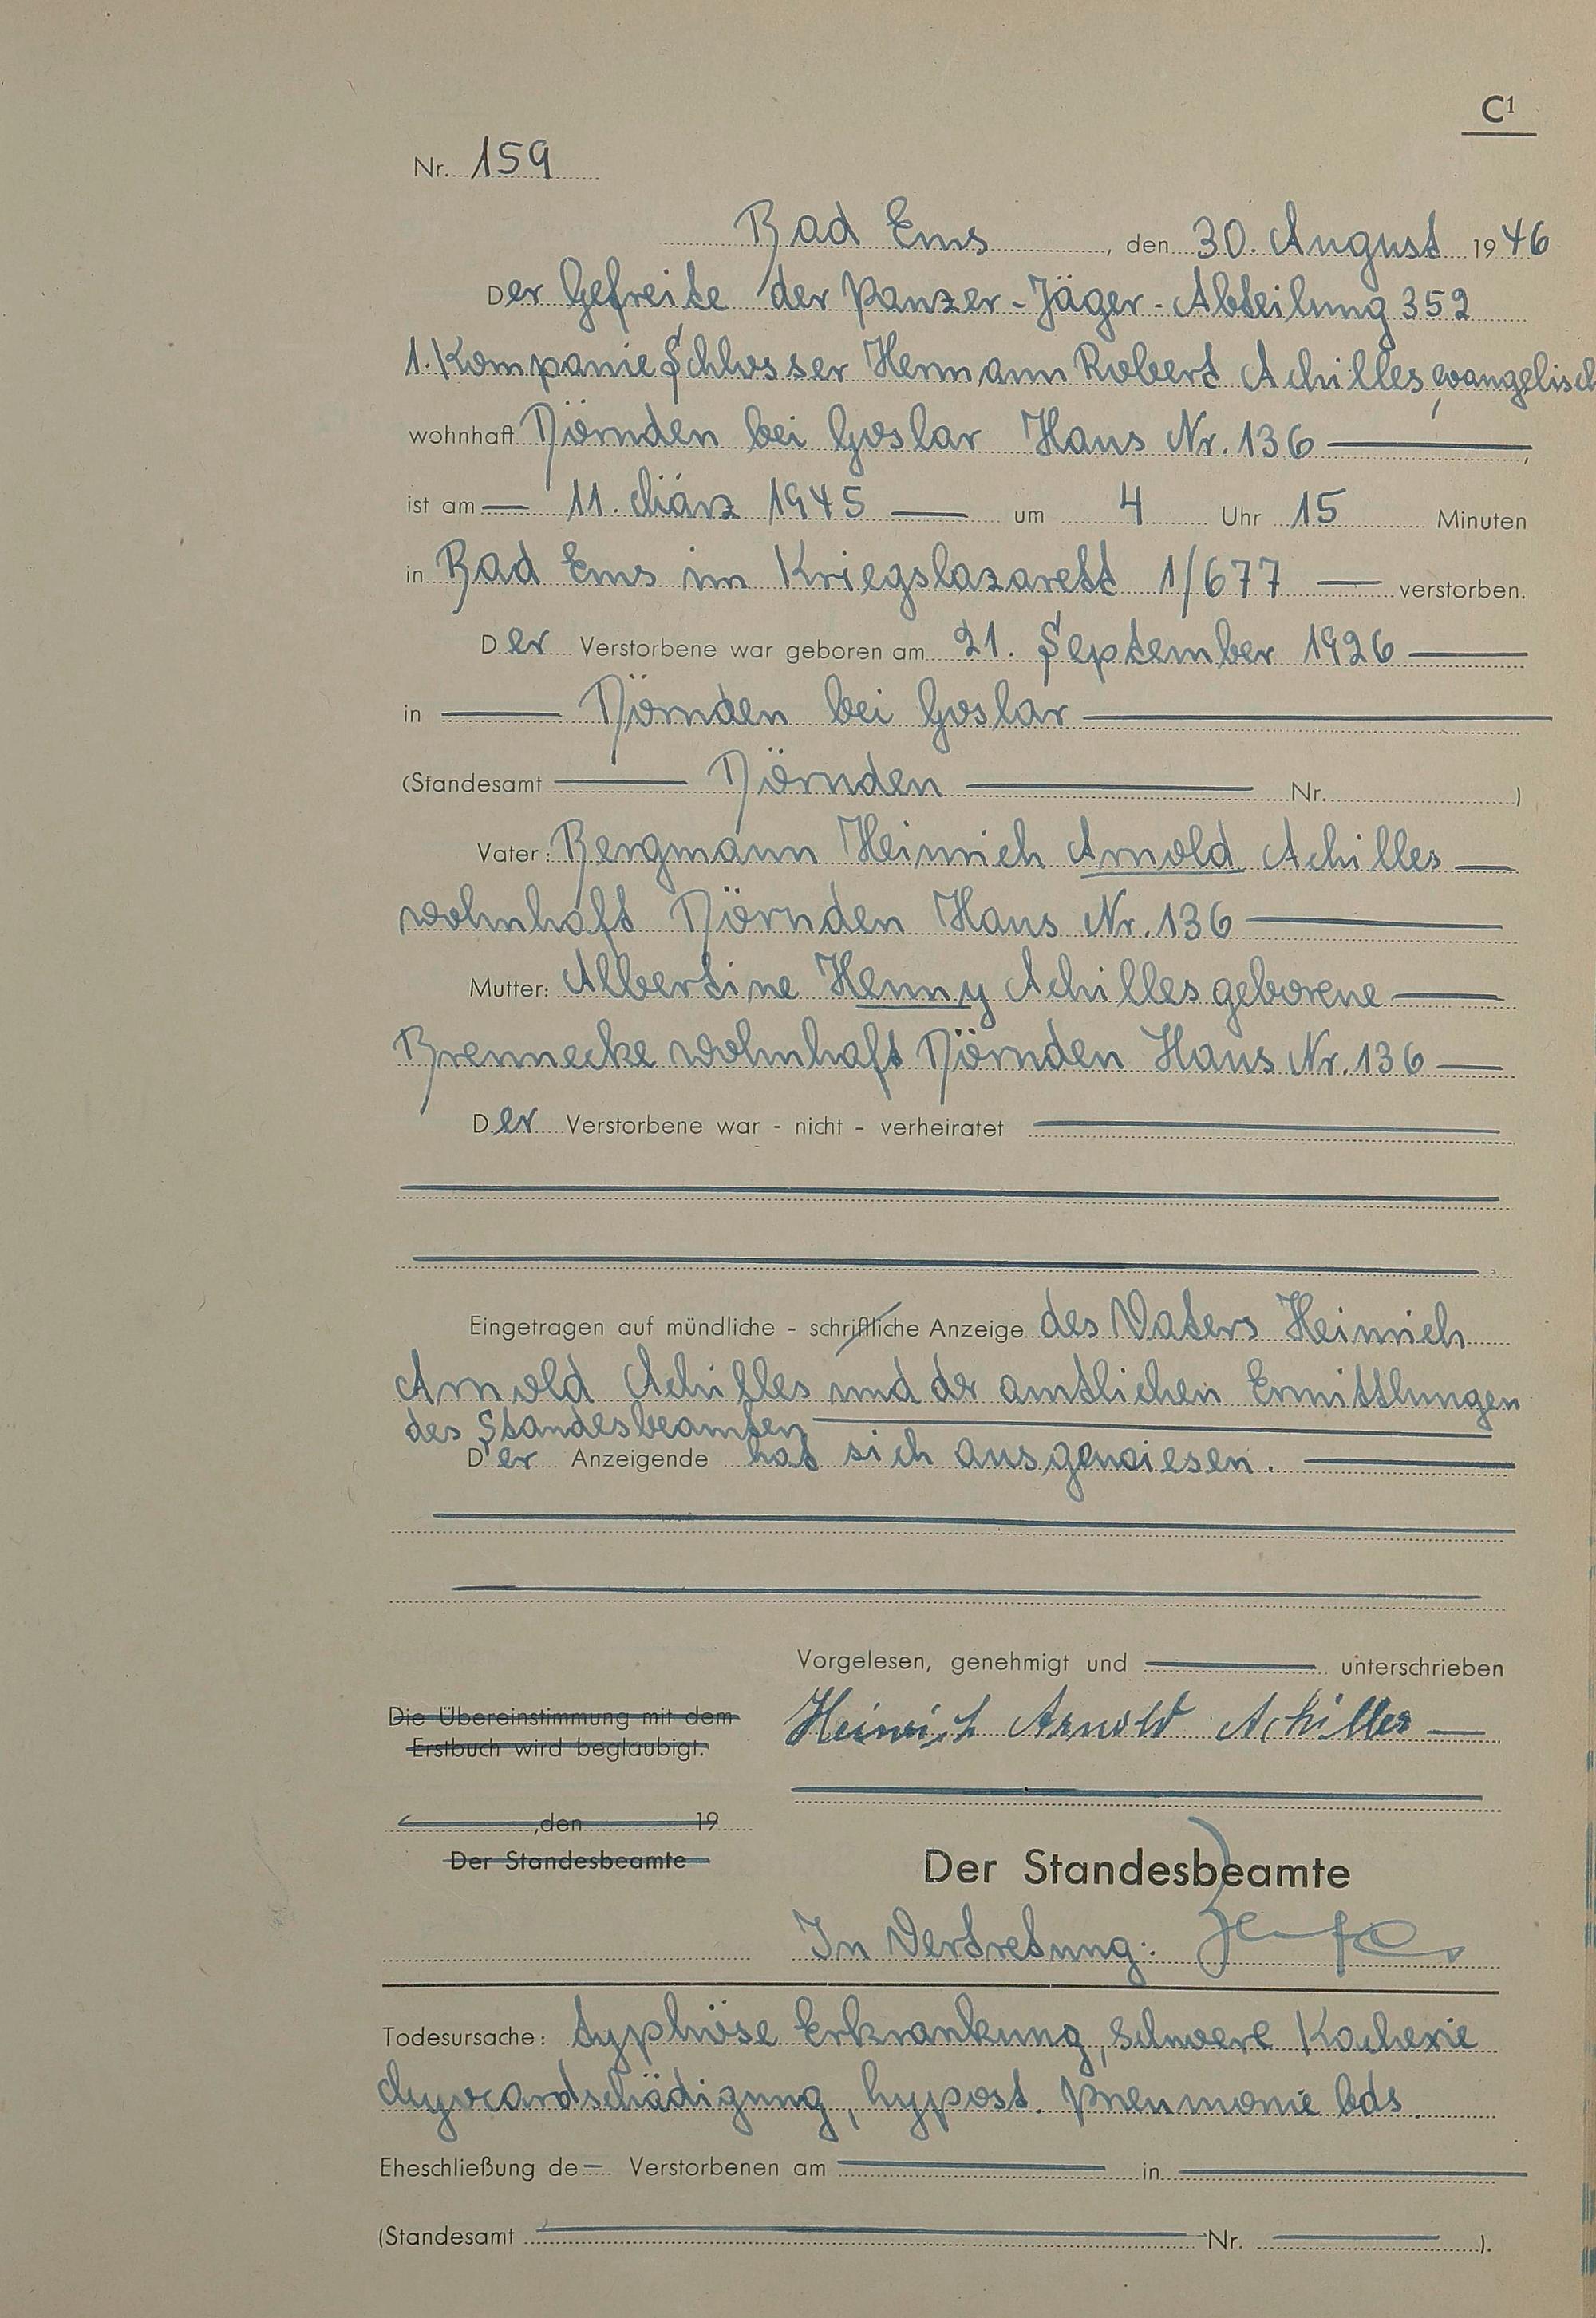 C¹
Nr. 159
Bad Ems, den 30. August 1946
Der Gefreite der Panzer-Jäger-Abteilung 352
1. Kompanie Schlosser Hermann Robert Achilles, evangelisch
wohnhaft Dörnden bei Goslar Haus Nr. 136,
ist am 11. März 1945 um 4 Uhr 15 Minuten
in Bad Ems im Kriegslazarett 1/677 verstorben.
Der Verstorbene war geboren am 21. September 1926
in Dörnden bei Goslar
(Standesamt Dörnden Nr. )
Vater: Bergmann Heinrich Arnold Achilles
wohnhaft Dörnden Haus Nr. 136
Mutter: Albertine Henny Achilles geborene
Brennecke wohnhaft Dörnden Haus Nr. 136
Der Verstorbene war - nicht - verheiratet
Eingetragen auf mündliche - schriftliche Anzeige des Vaters Heinrich
Arnold Achilles und der amtlichen Ermittlungen
des Standesbeamten
Der Anzeigende hat sich ausgewiesen.
Vorgelesen, genehmigt und unterschrieben
Heinrich Arnold Achilles
Die Übereinstimmung mit dem
Erstbuch wird beglaubigt.
, den 19
Der Standesbeamte
Der Standesbeamte
In Vertretung:
Todesursache: typhöse Erkrankung, schwere Kachexie
Myocardschädigung, hypost. Pneumonie bds.
Eheschließung de Verstorbenen am in
(Standesamt Nr. ).